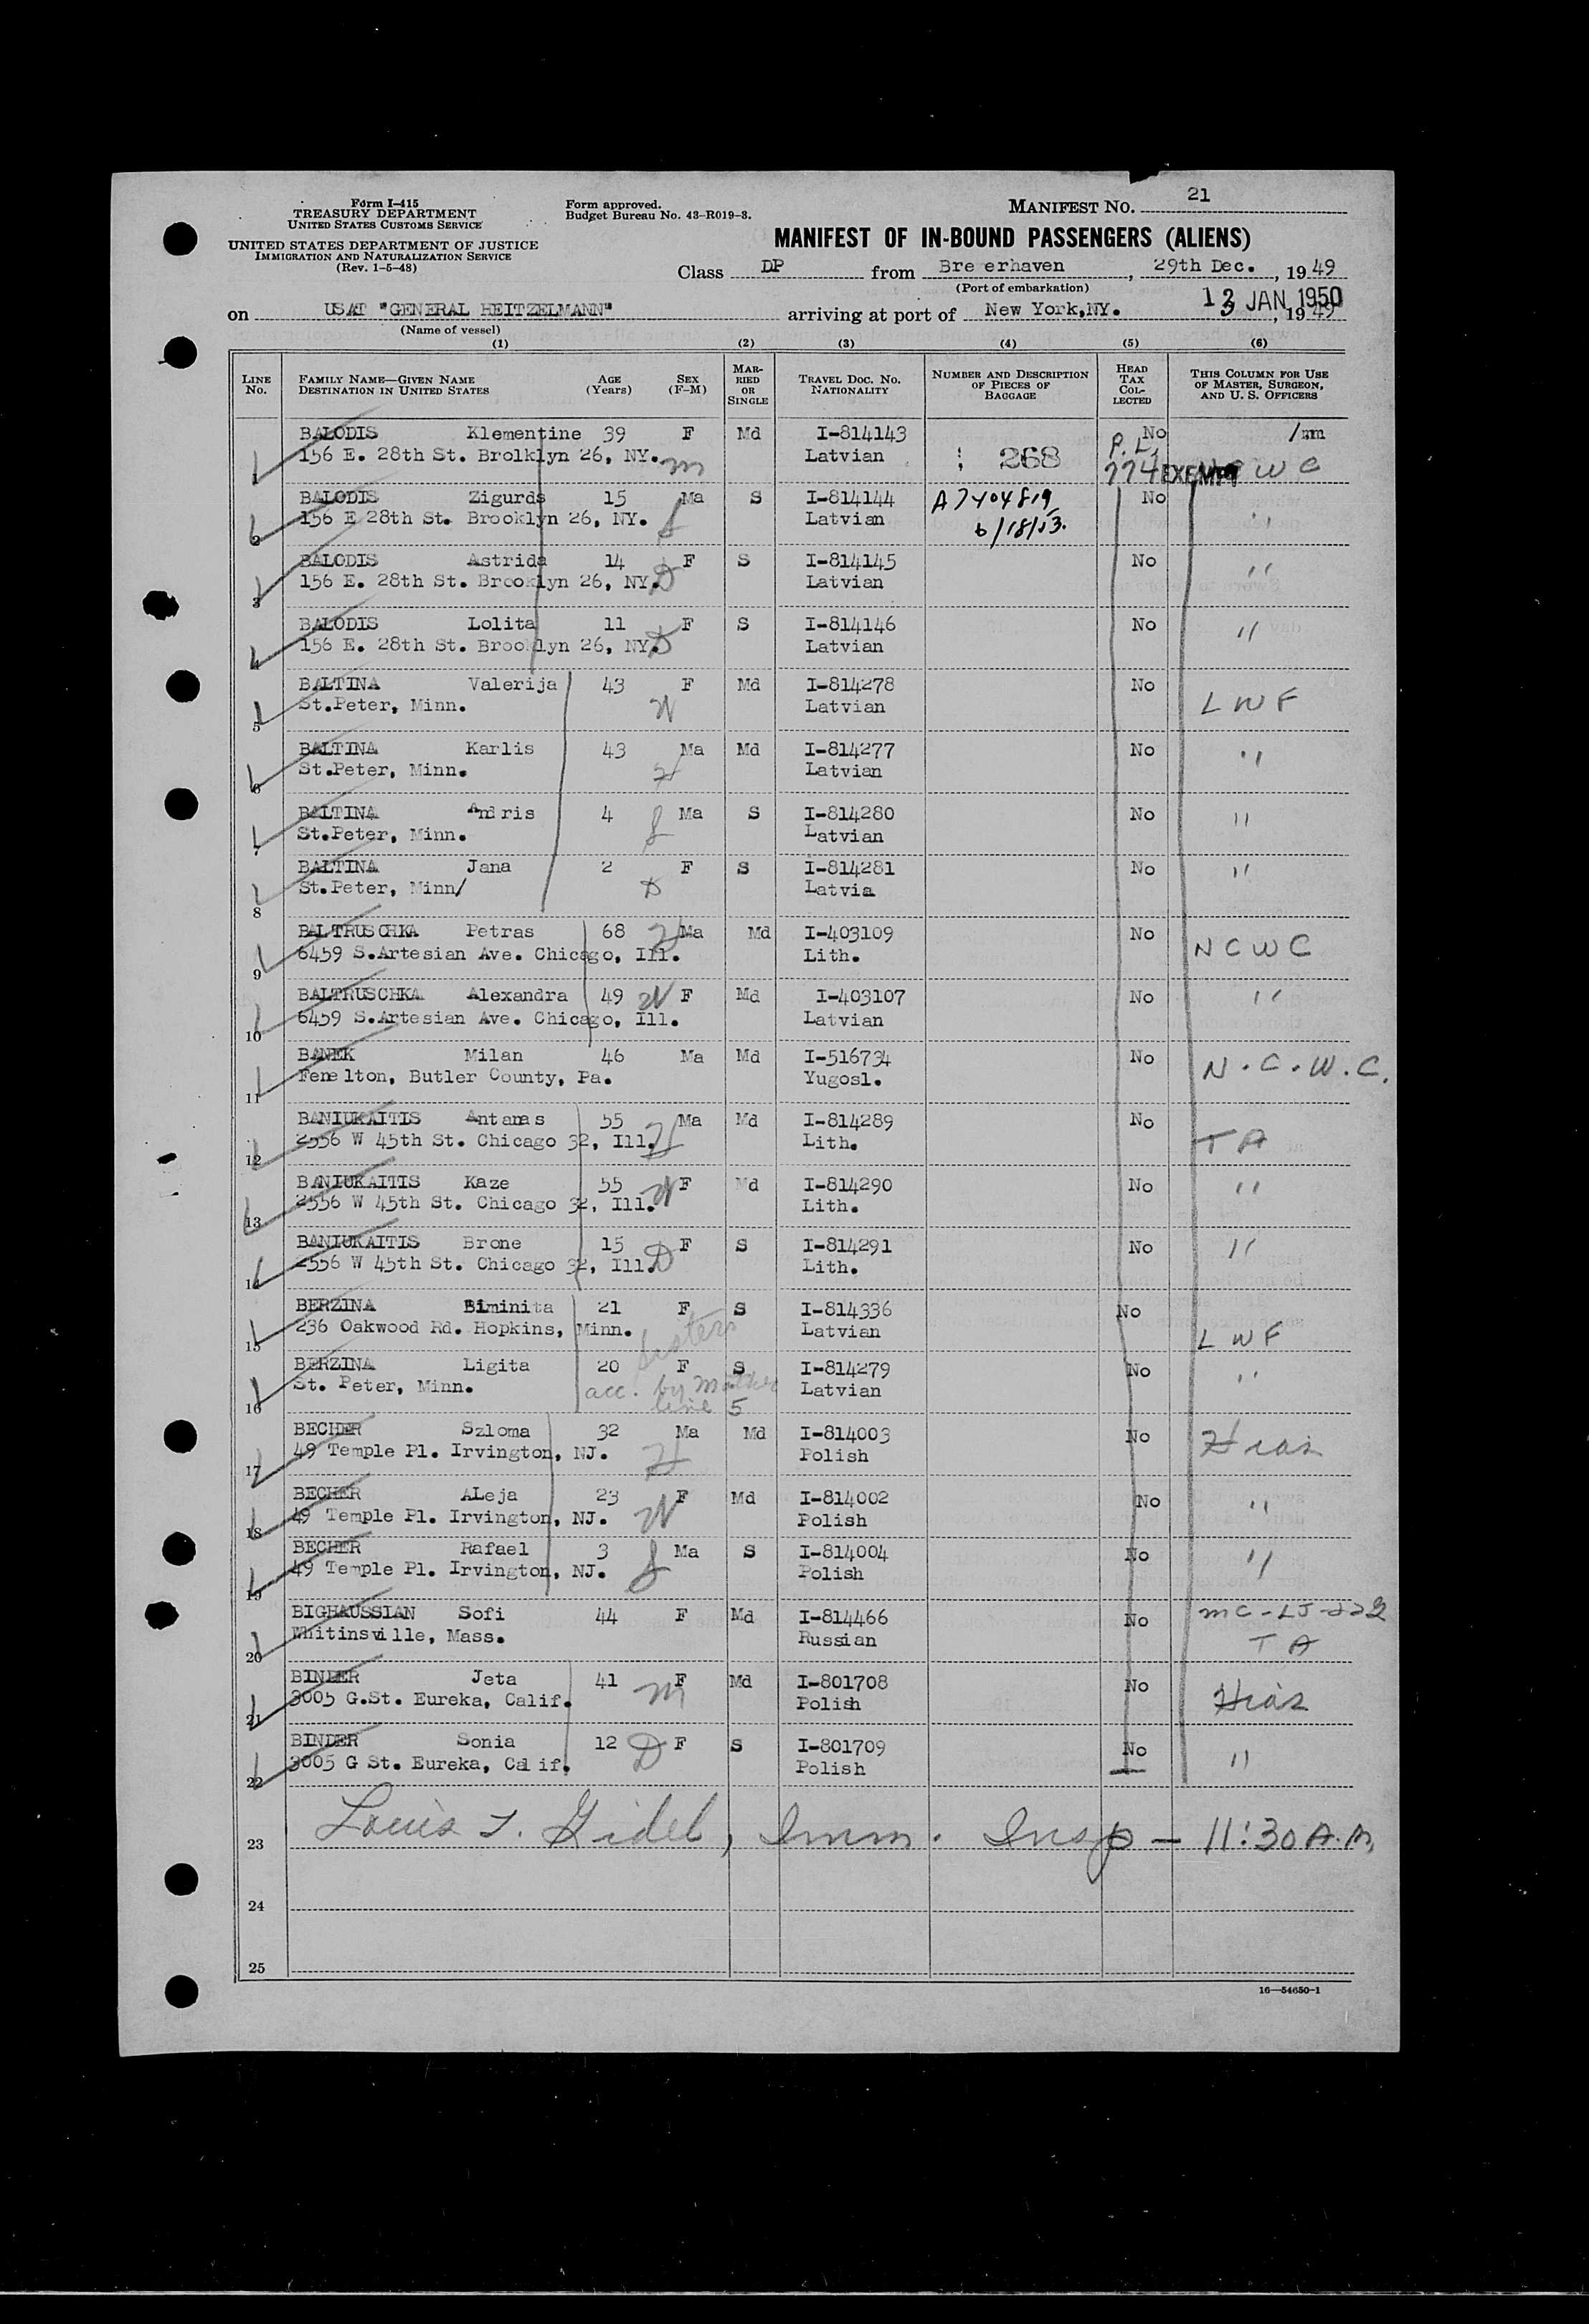 Form I-415
TREASURY DEPARTMENT
UNITED STATES CUSTOMS SERVICE
UNITED STATES DEPARTMENT OF JUSTICE
IMMIGRATION AND NATURALIZATION SERVICE
(Rev. 1-5-48)
Form approved.
Budget Bureau No. 43-R019-3.
MANIFEST NO. 21
MANIFEST OF IN-BOUND PASSENGERS (ALIENS)
Class DP from Bre erhaven, 29th Dec., 1949
(Port of embarkation)
13 JAN 1950
on USAT "GENERAL HEITZELMANN" arriving at port of New York,NY. , 1949
(Name of vessel)
(1) (2) (3) (4) (5) (6)
LINE No. FAMILY NAME—GIVEN NAME DESTINATION IN UNITED STATES AGE (Years) SEX (F-M) MARRIED OR SINGLE TRAVEL DOC. NO. NATIONALITY NUMBER AND DESCRIPTION OF PIECES OF BAGGAGE HEAD TAX COLLECTED THIS COLUMN FOR USE OF MASTER, SURGEON, AND U. S. OFFICERS
BALODIS Klementine 39 F Md I-814143 No
1 156 E. 28th St. Brolklyn 26, NY. m Latvian 268 P.L. 774 EXEMPT W C
BALODIS Zigurds 15 Ma S I-814144 A7404819 No
2 156 E 28th St. Brooklyn 26, NY. Latvian 6/18/53. "
BALODIS Astrida 14 F S I-814145 No "
3 156 E. 28th St. Brooklyn 26, NY. D Latvian
BALODIS Lolita 11 F S I-814146 No "
4 156 E. 28th St. Brooklyn 26, NY. D Latvian
BALTINA Valerija 43 F Md I-814278 No
5 St.Peter, Minn. W Latvian L W F
BALTINA Karlis 43 Ma Md I-814277 No "
6 St.Peter, Minn. H Latvian
BALTINA Andris 4 Ma S I-814280 No "
7 St.Peter, Minn. Latvian
BALTINA Jana 2 F S I-814281 No "
8 St.Peter, Minn/ D Latvia
BALTRUSCHKA Petras 68 H Ma Md I-403109 No
9 6459 S.Artesian Ave. Chicago, Ill. Lith. N C W C
BALTRUSCHKA Alexandra 49 W F Md I-403107 No "
10 6459 S.Artesian Ave. Chicago, Ill. Latvian
BANEK Milan 46 Ma Md I-516734 No
11 Fenelton, Butler County, Pa. Yugosl. N.C.W.C.
BANIUKAITIS Antanas 55 Ma Md I-814289 No
12 2556 W 45th St. Chicago 32, Ill. H Lith. T A
BANIUKAITIS Kaze 55 F Md I-814290 No "
13 2556 W 45th St. Chicago 32, Ill. W Lith.
BANIUKAITIS Brone 15 F S I-814291 No "
14 2556 W 45th St. Chicago 32, Ill. D Lith.
BERZINA Biminita 21 F S I-814336 No
15 236 Oakwood Rd. Hopkins, Minn. Sisters Latvian L W F
BERZINA Ligita 20 F S I-814279 No "
16 St. Peter, Minn. acc. by Mother line 5 Latvian
BECHER Szloma 32 Ma Md I-814003 No Hias
17 49 Temple Pl. Irvington, NJ. H Polish
BECHER ALeja 23 F Md I-814002 No "
18 49 Temple Pl. Irvington, NJ. W Polish
BECHER Rafael 3 Ma S I-814004 No "
19 49 Temple Pl. Irvington, NJ. Polish
BIGHAUSSIAN Sofi 44 F Md I-814466 No mC-LJ-222
20 Whitinsville, Mass. Russian T A
BINDER Jeta 41 F Md I-801708 No Hias
21 3005 G.St. Eureka, Calif. m Polish
BINDER Sonia 12 D F S I-801709 No "
22 3005 G St. Eureka, Calif. Polish
23 Louis J. Gidel, Imm. Insp — 11:30 A.M.
24
25
16—54650-1